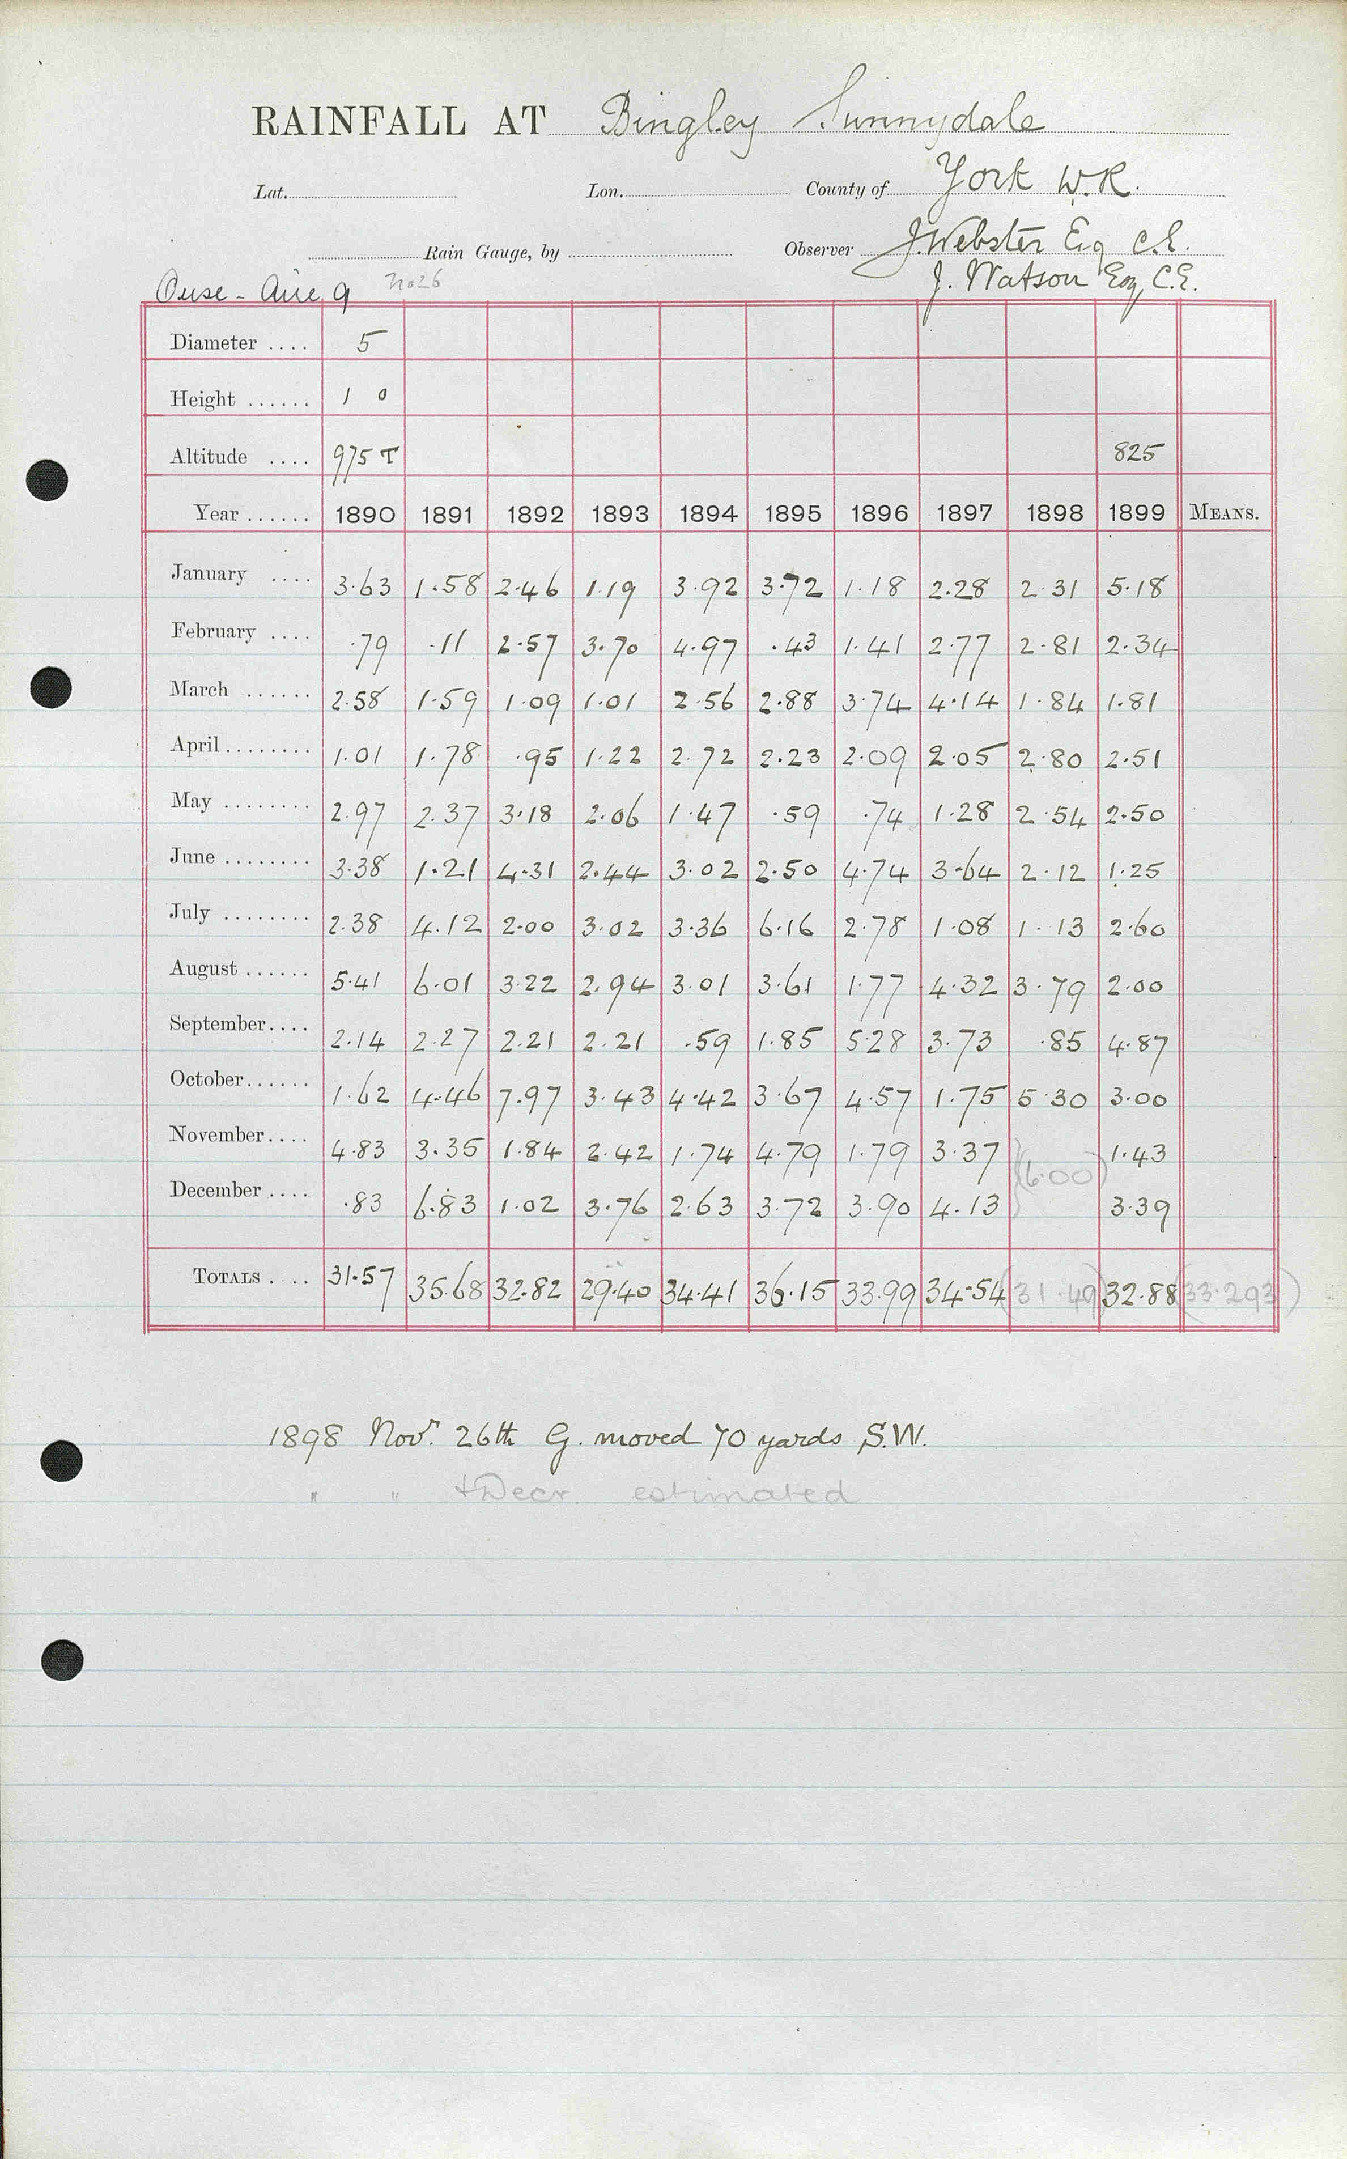 RAINFALL AT Bingley Sunnydale
Lat. Lon. County of York W.R.
Rain Gauge, by Observer J. Webster Esq C.E.
J. Watson Esq, C.E.
Ouse - Aire 9 No 26
Diameter .... 5
Height ...... 1 0
Altitude .... 975 T 825
Year ...... 1890 1891 1892 1893 1894 1895 1896 1897 1898 1899 MEANS.
January .... 3.63 1.58 2.46 1.19 3.92 3.72 1.18 2.28 2.31 5.18
February .... .79 .11 2.57 3.70 4.97 .43 1.41 2.77 2.81 2.34
March ...... 2.58 1.59 1.09 1.01 2.56 2.88 3.74 4.14 1.84 1.81
April ........ 1.01 1.78 .95 1.22 2.72 2.23 2.09 2.05 2.80 2.51
May ........ 2.97 2.37 3.18 2.06 1.47 .59 .74 1.28 2.54 2.50
June ........ 3.38 1.21 4.31 2.44 3.02 2.50 4.74 3.64 2.12 1.25
July ........ 2.38 4.12 2.00 3.02 3.36 6.16 2.78 1.08 1.13 2.60
August ...... 5.41 6.01 3.22 2.94 3.01 3.61 1.77 4.32 3.79 2.00
September .... 2.14 2.27 2.21 2.21 .59 1.85 5.28 3.73 .85 4.87
October ...... 1.62 4.46 7.97 3.43 4.42 3.67 4.57 1.75 5.30 3.00
November .... 4.83 3.35 1.84 2.42 1.74 4.79 1.79 3.37 (6.00) 1.43
December .... .83 6.83 1.02 3.76 2.63 3.72 3.90 4.13 3.39
TOTALS .... 31.57 35.68 32.82 29.40 34.41 36.15 33.99 34.54 (31.49) 32.88 (33.293)
1898 Novr. 26th G. moved 70 yards S.W.
" " + Decr. estimated